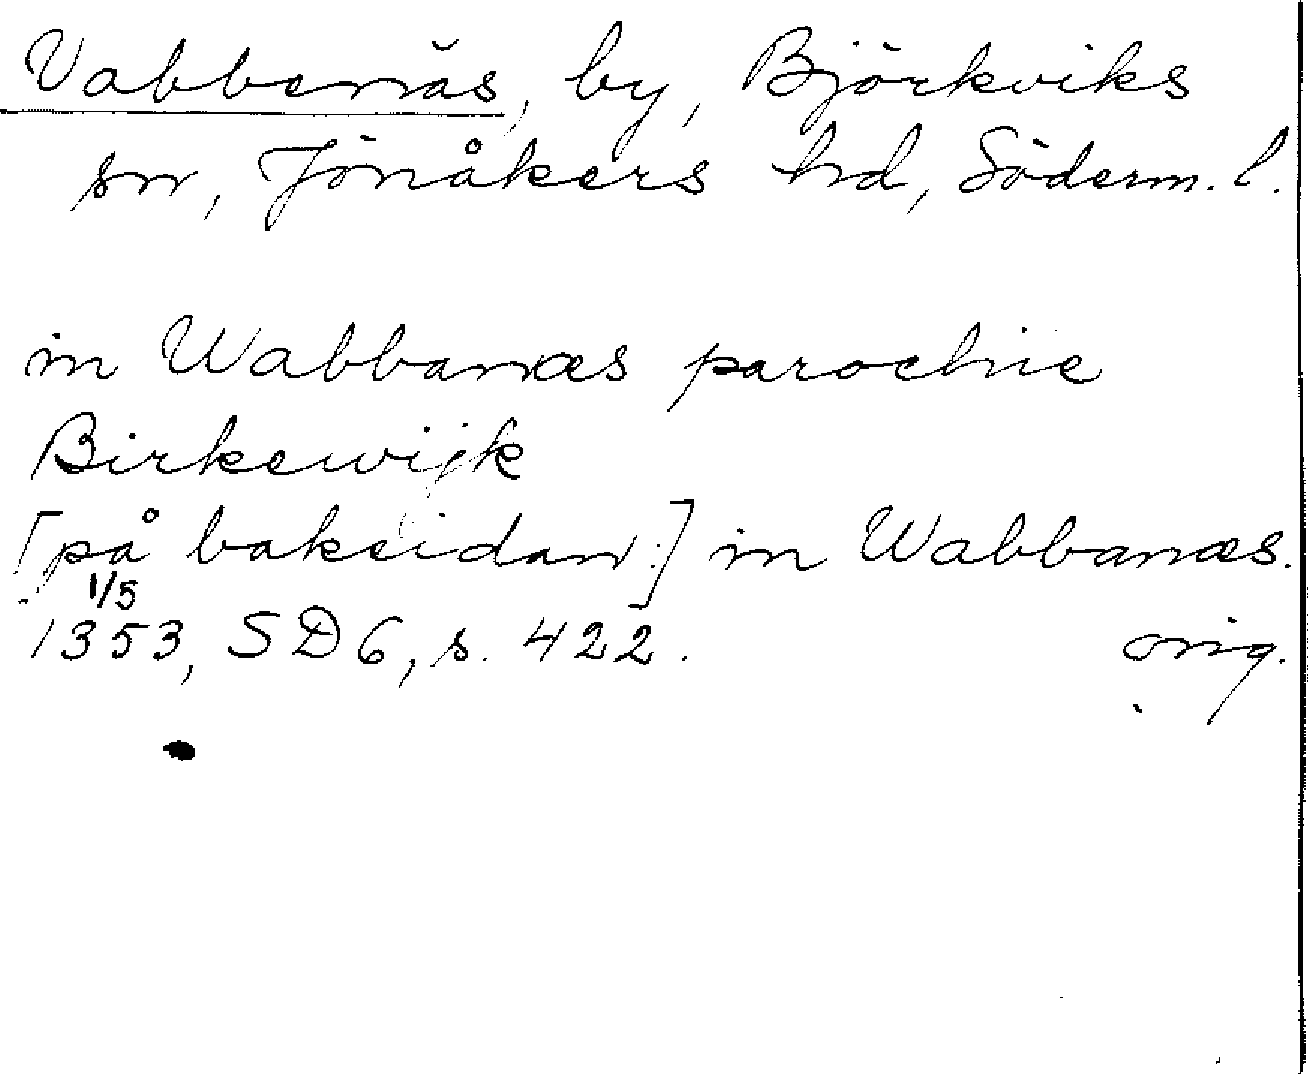 Vabbenäs, by, Björkviks
sn, Jönåkers hd, Söderm. l.
in Wabbanæs parochie
Birkewijk
[på baksidan:] in Wabbanæs.
1/5
1353, SD 6, s. 422. orig.